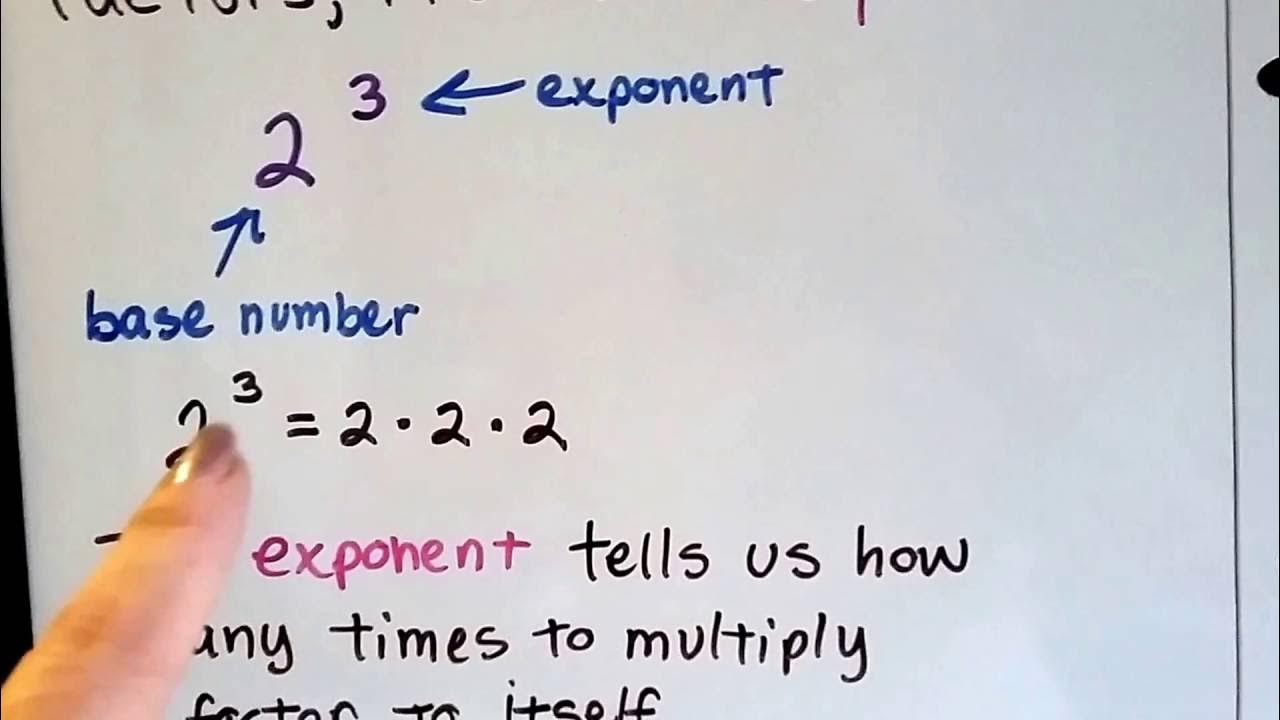 factors,
2³ ← exponent
base number
2³ = 2 · 2 · 2
exponent tells us how
any times to multiply
factor to itself